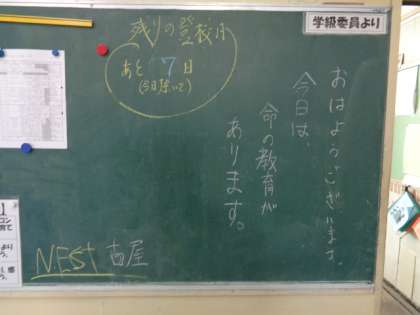 学級委員より
おはようございます。
今日は、
命の教育が
あります。
残りの登校日
あと7日
(今日除いて)
NEST古屋